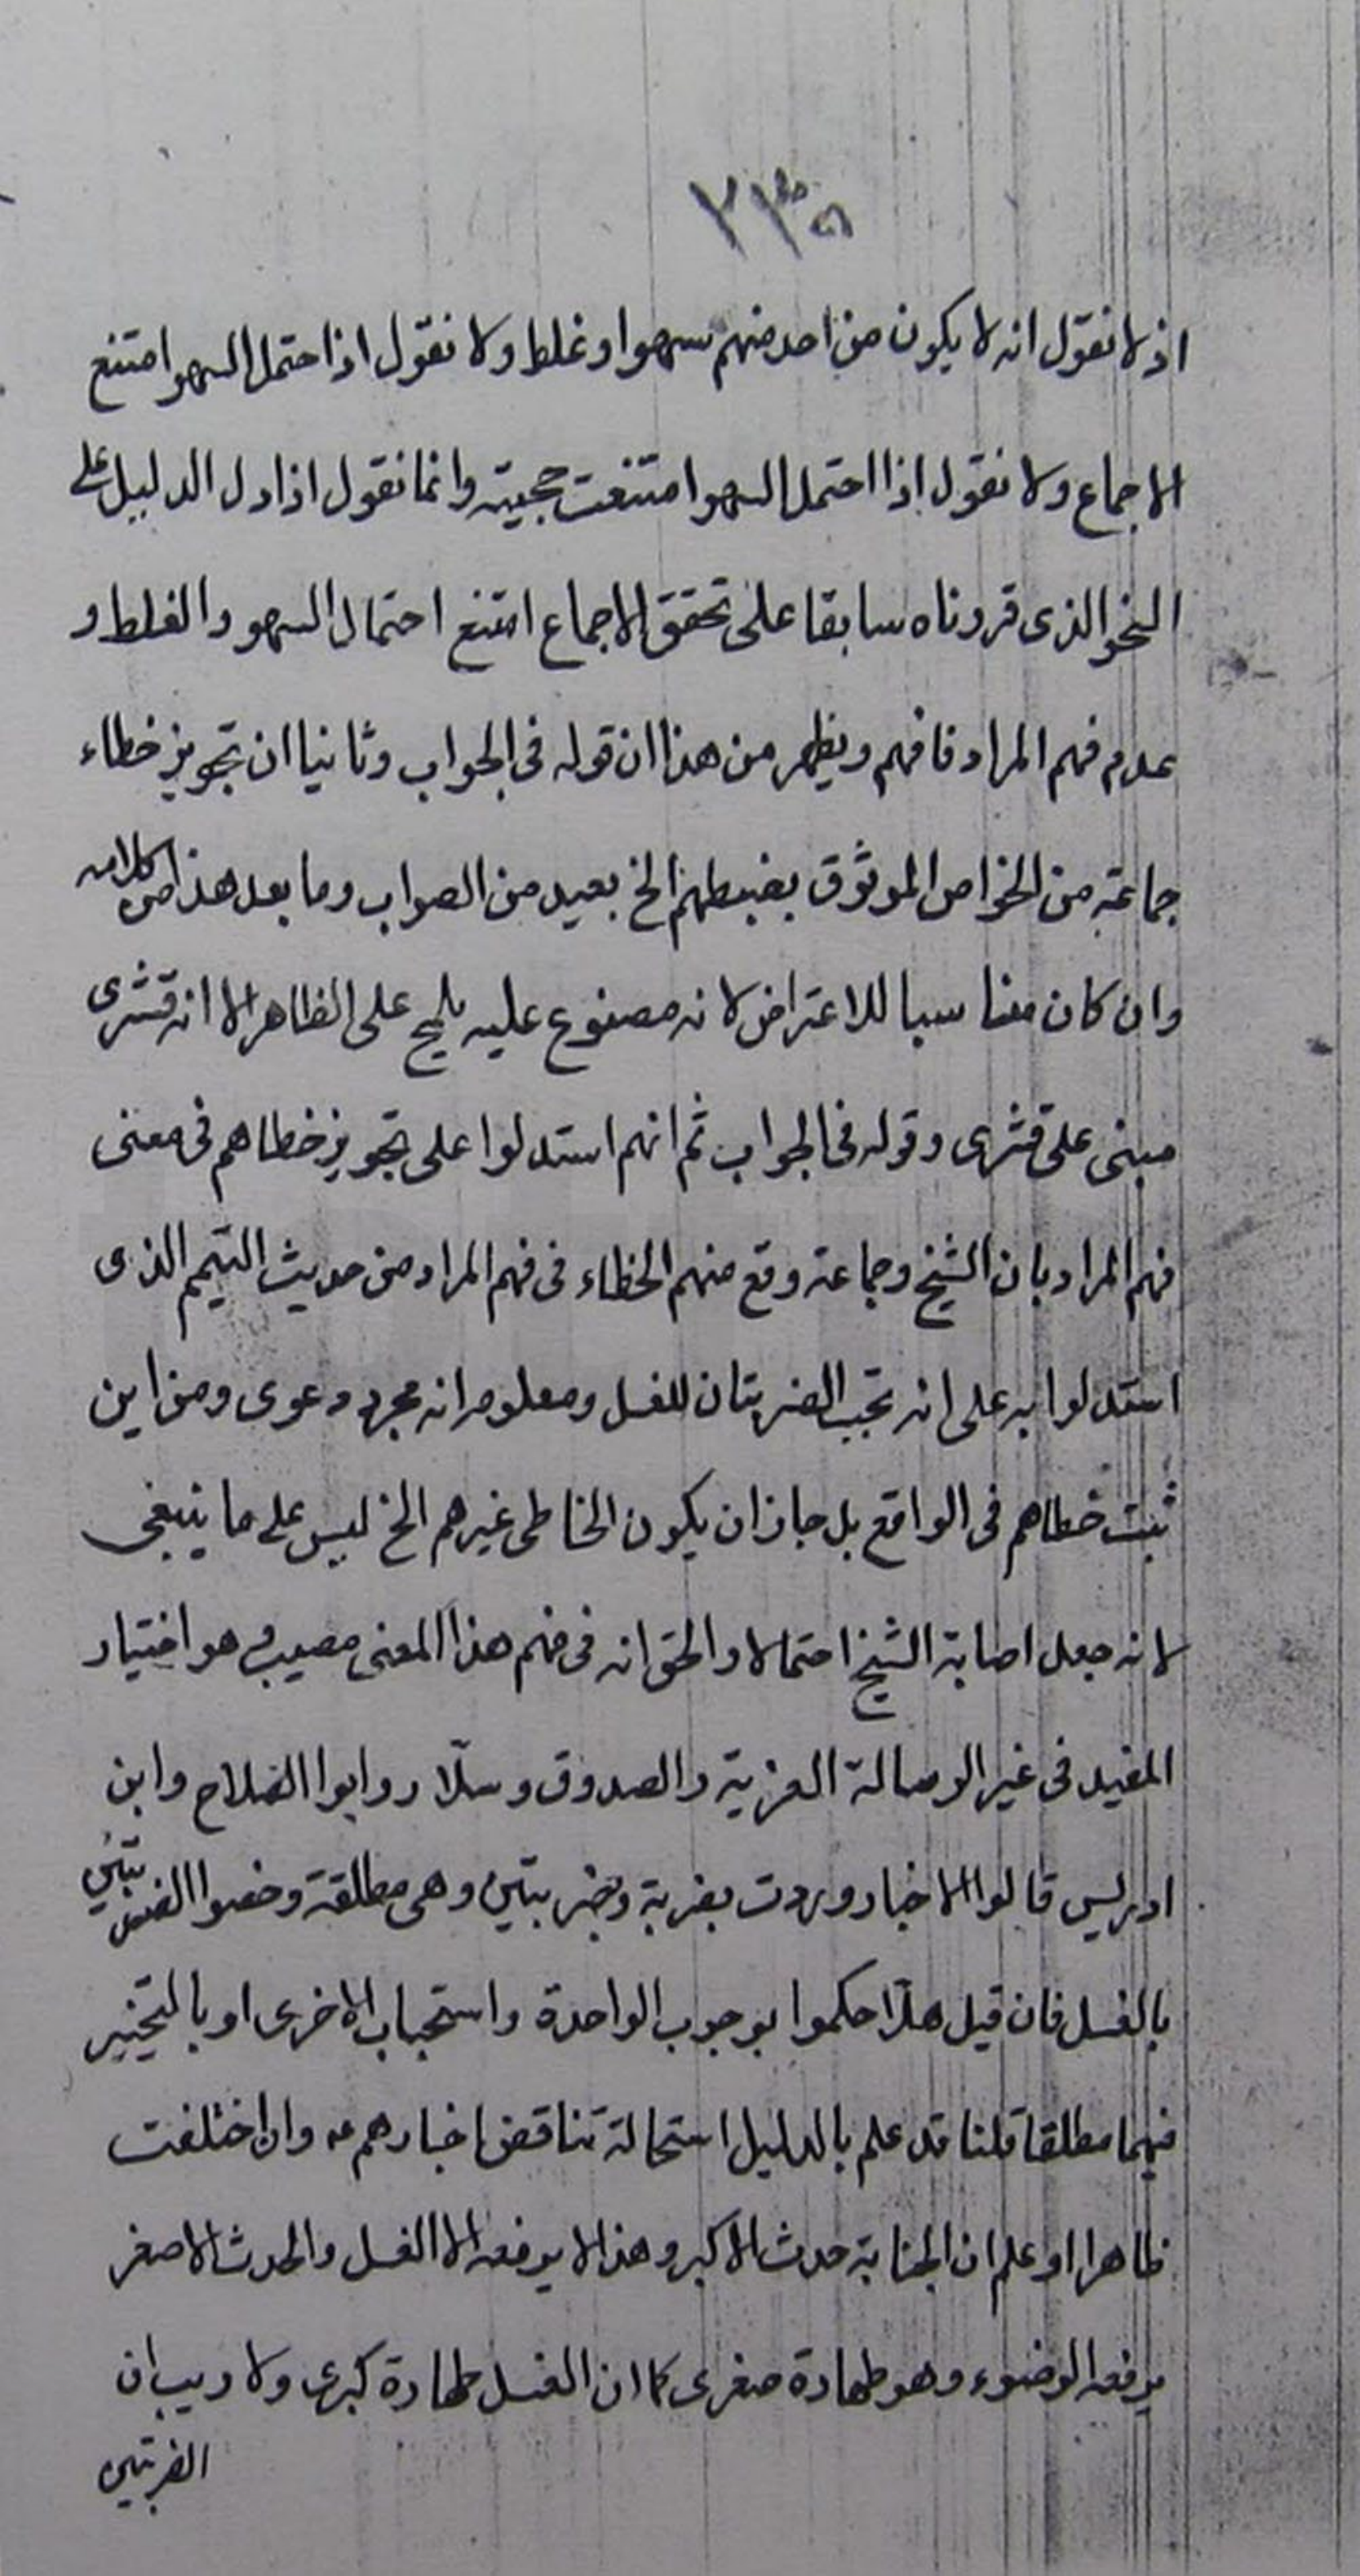 ٢٣٥
اذ لا نقول انه لا يكون من احد منهم سهو او غلط ولا نقول اذا احتمل السهو امتنع
الاجماع ولا نقول اذا احتمل السهو امتنعت حجيته وانما نقول اذا دل الدليل على
النحو الذى قررناه سابقا على تحقق الاجماع امتنع احتمال السهو والغلط و
عدم فهم المراد فافهم ويظهر من هذا ان قوله فى الجواب وثانيا ان تجويز خطاء
جماعة من الخواص الموثوق بضبطهم الخ بعيد من الصواب وما بعد هذا من كلامه
وان كان مناسبا للاعتراض لانه مصنوع عليه يلج على الظاهر الا انه قشرى
مبنى على قشرى وقوله فى الجواب ثم انهم استدلوا على تجويز خطاهم فى معنى
فهم المراد بان الشيخ وجماعة وقع منهم الخطاء فى فهم المراد من حديث التيمم الذى
استدلوا به على انه تجب الضربتان للغسل ومعلوم انه مجرد دعوى ومن اين
ثبت خطاهم فى الواقع بل جاز ان يكون الخاطى غيرهم الخ ليس على ما ينبغى
لانه جعل اصابة الشيخ احتمالا والحق انه فى فهم هذا المعنى مصيب وهو اختيار
المفيد فى غير الرسالة العزية والصدوق وسلّار وابوا الصلاح وابن
ادريس قالوا الاخبار وردت بضربة وبضربتين وهى مطلقة وخصوا الضربتين
بالغسل فان قيل هلّا حكموا بوجوب الواحدة واستحباب الاخرى او بالتخيير
فيهما مطلقا قلنا قد علم بالدليل استحالة تناقض اخبارهم ع وان اختلفت
ظاهرا وعلم ان الجنابة حدث الاكبر وهذا لا يرفعه الا الغسل والحدث الاصغر
يرفعه الوضوء وهو طهارة صغرى كما ان الغسل طهارة كبرى ولا ريب ان
الضربتين